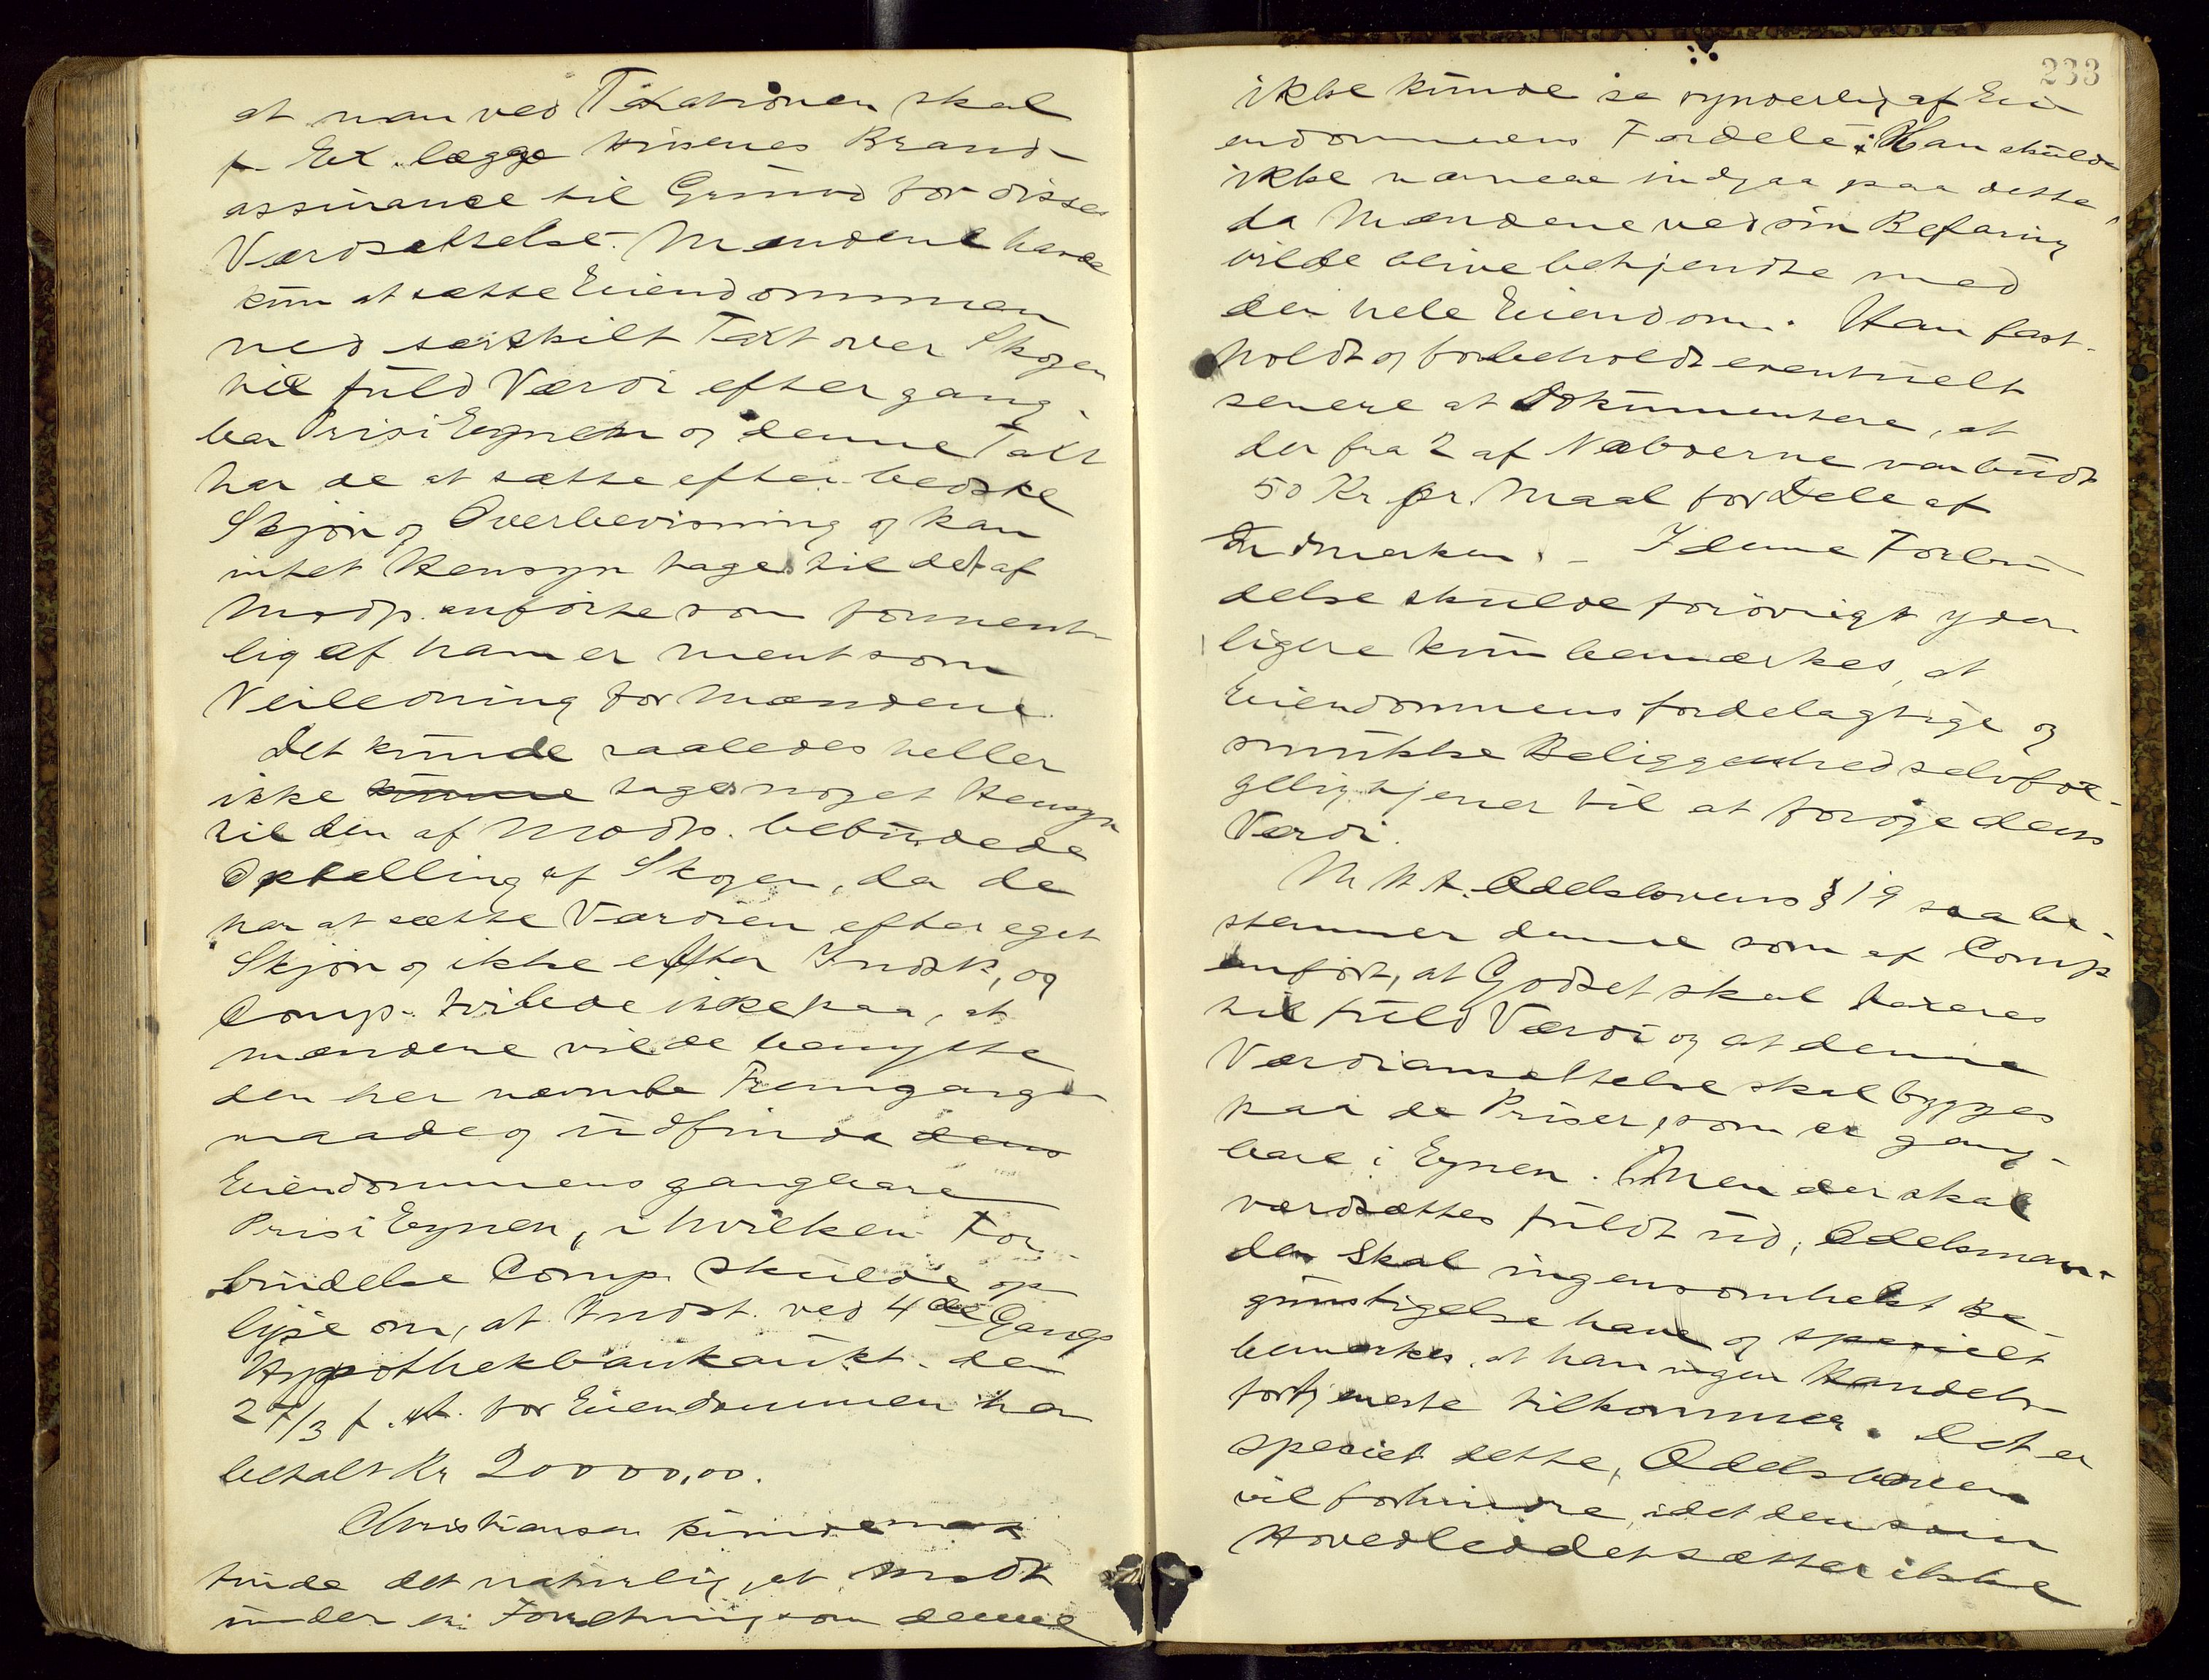 at man ved Taxationen skal
f. Ex. lægge Husenes Brand-
assurance til Grund for disses
Værdsættelse. Mændene havde
kun at sætte Eiendommen
med særskilt Taxt over Skogen
til fuld Værdi efter gang-
bar Pris i Egnen og denne Taxt
har de at sætte efter bedste
Skjøn og Overbevisning og kan
intet Hensyn tages til det af
Modp. anførte som forment-
lig af ham er ment som
Veiledning for Mændene.
Det kunde saaledes heller
ikke kunne tages noget Hensyn
til den af Modp. bebudede
Optælling af Skogen, da de
har at sætte Værdien efter eget
Skjøn og ikke efter Indst, og
Comp. tvilede ikke paa, at
mændene vilde benytte
den her nævnte Fremgangs-
maade og udfinde dens
Eiendommens gangbare
Pris i Egnen, i hvilken For-
bindelse Comp. skulde op-
lyse om, at Indst. ved 4de Gangs
Hypothekbankaukt. den
27/3 f. A. for Eiendommen har
betalt Kr 20000,00.
Christiansen kunde
finde det naturlig, at Modp
under en Forretning som denne
233
ikke kunde se synderlig af Ei-
endommens Fordele. Han skulde
ikke nærmere indgaa paa dette,
da Mændene ved sin Befaring
vilde blive bekjendte med
den hele Eiendom. Han fast-
holdt og forbeholdt eventuelt
senere at dokumentere, at
der fra 2 af Naboerne var budt
50 Kr pr. Maal for Dele af
Indmarken. – I denne Forbin-
delse skulde forøvrigt yder-
ligere kun bemærkes, at
Eiendommens fordelagtige og
smukke Beliggenhed selvføl-
gelig tjener til at forøge dens
Værdi.
M. H. t. Odelslovens § 19 saa be-
stemmer denne som af Comp
anført, at Godset skal taxeres
til fuld Værdi og at denne
Værdiansættelse skal bygges
paa de Priser, som er gang-
bare i Egnen. Men der skal
værdsættes fuldt ud; Odelsman-
den skal ingensomhelst Be-
gunstigelse have og specielt
bemærkes, at han ingen Handels-
fortjeneste tilkommer. Det er
specielt dette, Odelsloven
vil forhindre, idet den som
Hovedleddet sætter ikke